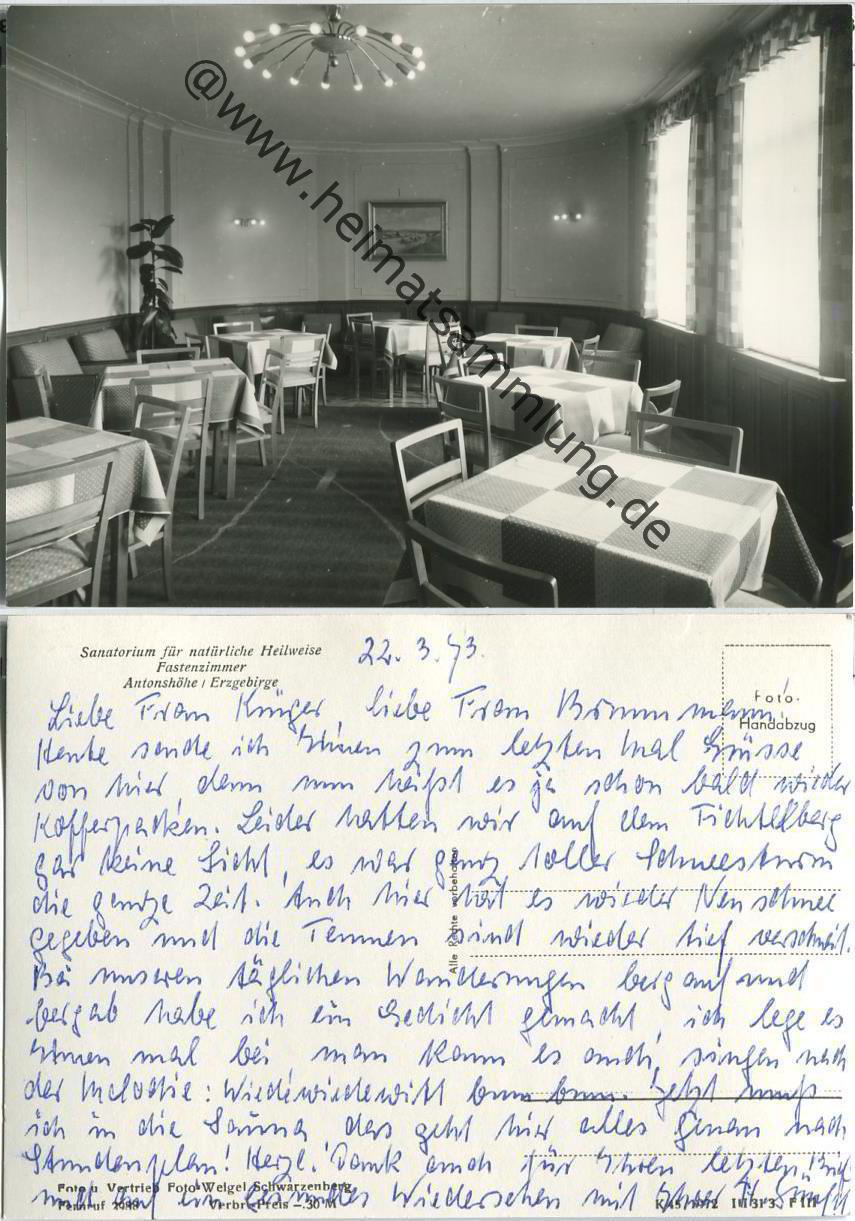 @www.heimatsammlung.de
Sanatorium für natürliche Heilweise
Fastenzimmer
Antonshöhe / Erzgebirge
22. 3. 73.
Foto-
Handabzug
Liebe Frau Krüger, liebe Frau Brummmann,
Heute sende ich Ihnen zum letzten Mal Grüsse
von hier, denn nun heißt es ja schon bald wieder
Kofferpacken. Leider hatten wir auf dem Fichtelberg
gar keine Sicht, es war ganz toller Schneesturm
die ganze Zeit. Auch hier hat es wieder Neuschnee
gegeben und die Tannen sind wieder tief verschneit.
Bei unseren täglichen Wanderungen bergauf und
bergab habe ich ein Gedicht gemacht, ich lege es
Ihnen mal bei man kann es auch singen nach
der Melodie: Wiedewiedewitt bum bum. Jetzt muß
ich in die Sauna, das geht hier alles genau nach
Stundenplan! Herzl. Dank auch für Ihren letzten Brief
und auf ein Wiedersehen mit Ihnen
Alle Rechte vorbehalten
Foto u. Vertrieb Foto-Weigel Schwarzenberg
Fernruf Verbr.-Preis -.30 M